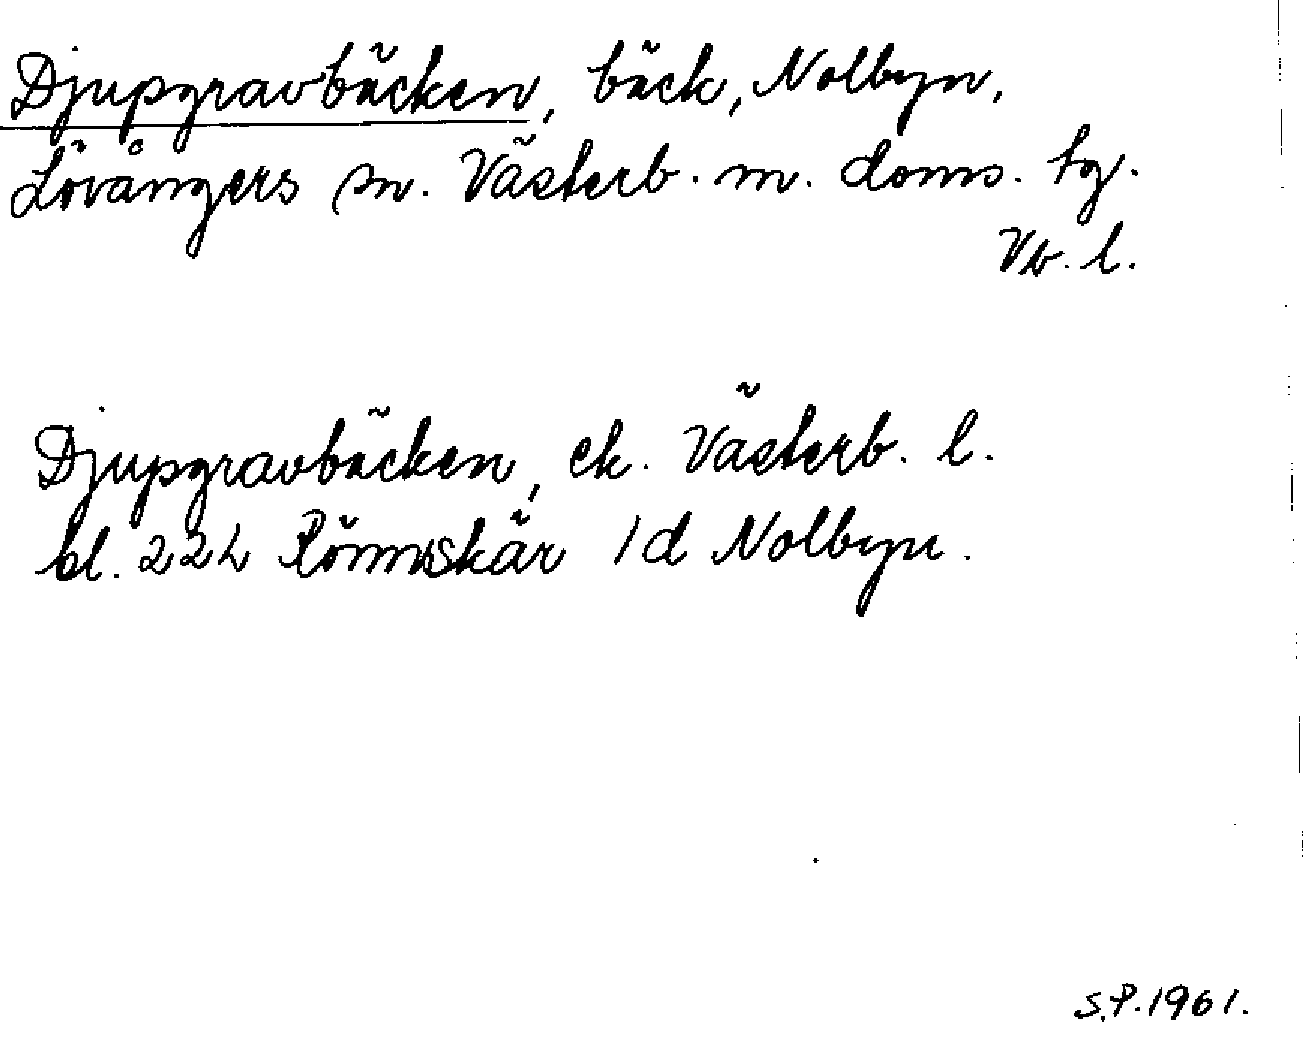 Djupgravbäcken, bäck, Nolbyn,
Lövångers sn. Västerb. m. doms. tg.
Vb. l.
Djupgravbäcken, ek. Västerb. l.
bl. 22L Rönnskär 1d Nolbyn.
S.P. 1961.